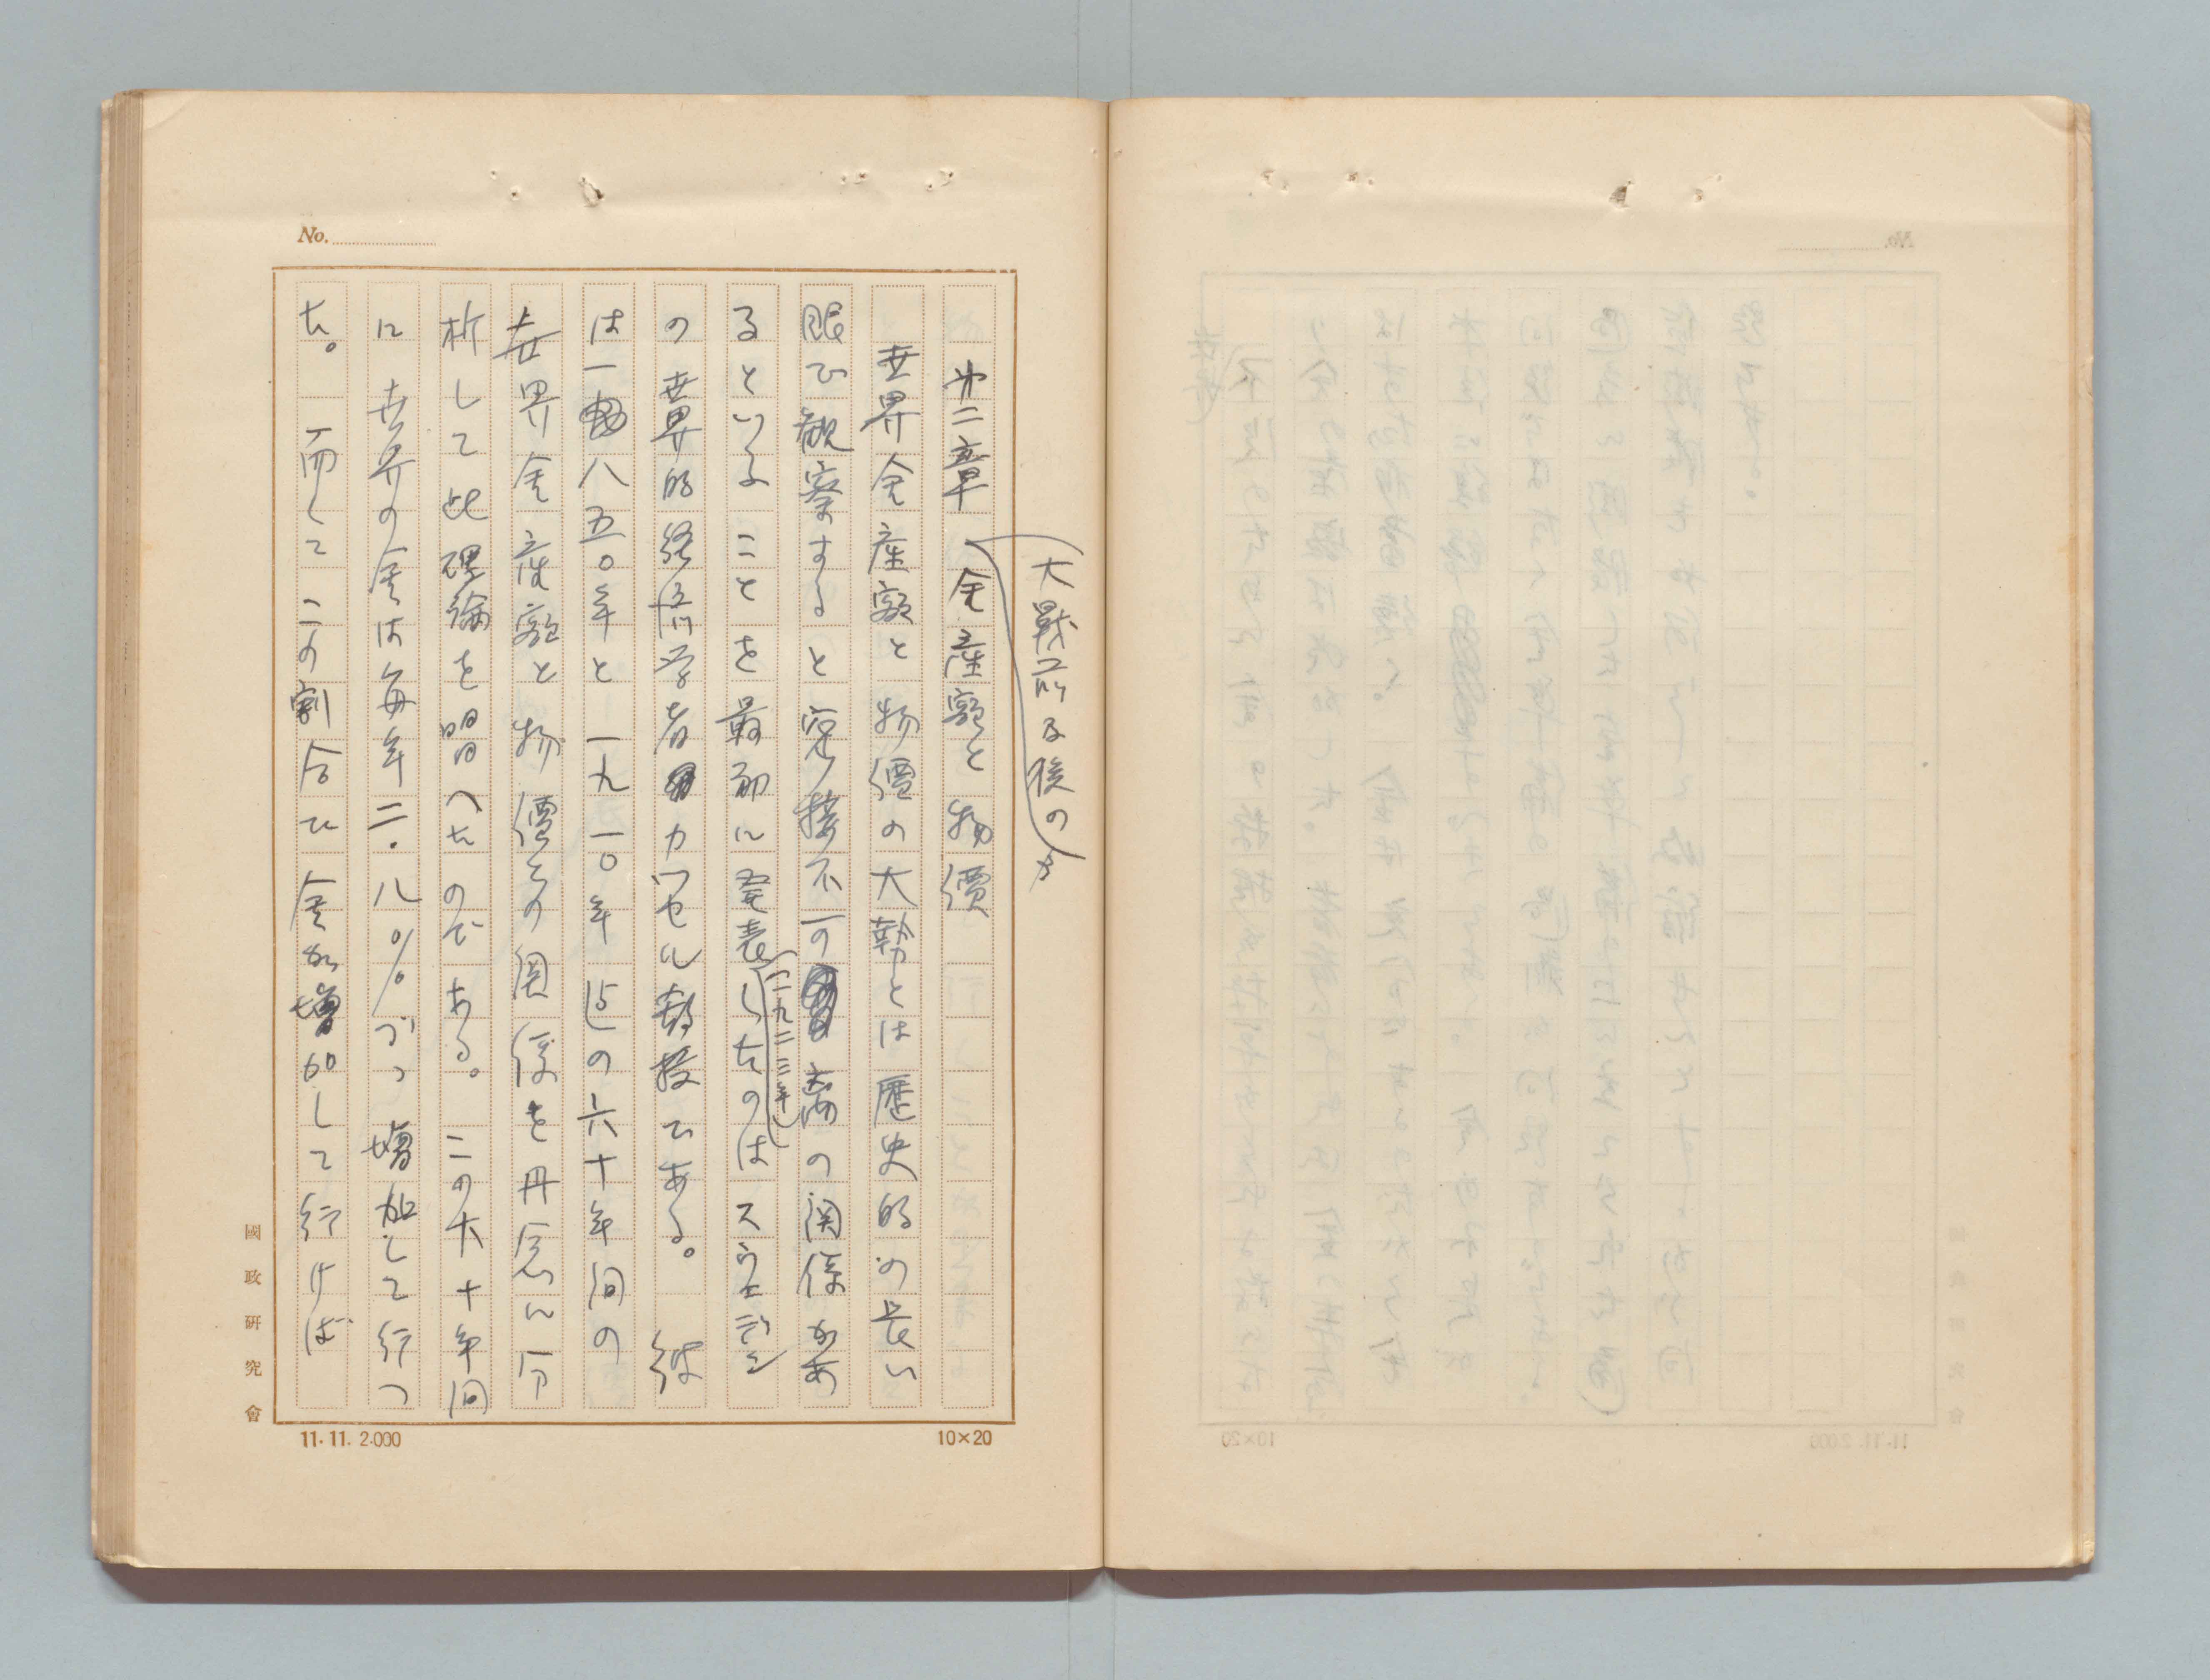 No.
大戦前及後の
第二章 金産額と物價
世界金産額と物價の大勢とは歴史的の長い
眼で観察すると密接不可離の関係があ
るといふことを最初に発表したのはスウエデン
(一九二二年)
の世界的経済学者カツセル教授である。彼
は一八五〇年と一九一〇年迄の六十年間の
世界金産額と物價との関係を丹念に分
析して此理論を唱へたのである。この六十年間
に世界の金は毎年二・八%づつ増加して行つ
た。而してこの割合で金が増加して行けば
國政研究會
11.11. 2.000
10×20